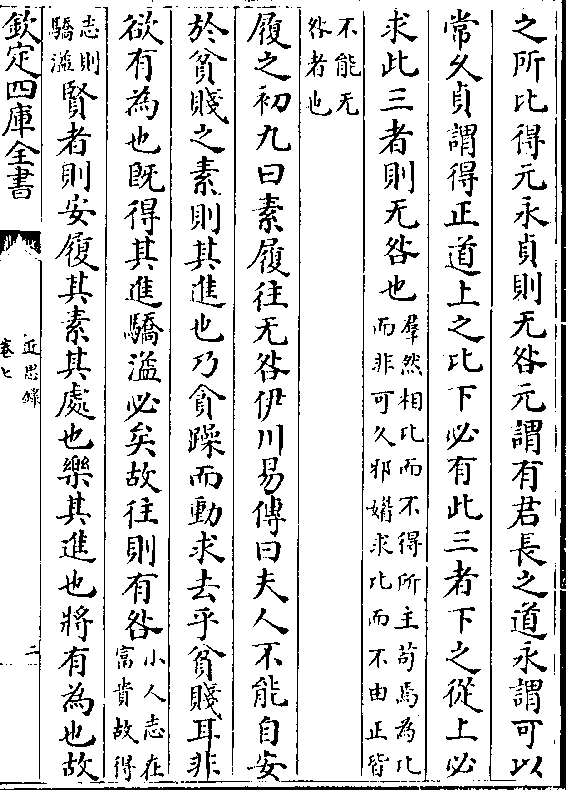 之所比得元永貞則无咎元謂有君長之道永謂可以
常久貞謂得正道上之比下必有此三者下之從上必
求此三者則无咎也羣然相比而不得所主苟焉為比
而非可久邪媚求比而不由正皆
不能无
咎者也
履之初九曰素履往无咎伊川易傳曰夫人不能自安
於貧賤之素則其進也乃貪躁而動求去乎貧賤耳非
欲有為也既得其進驕溢必矣故往則有咎小人志在
富貴故得
志則
驕溢
賢者則安履其素其處也樂其進也將有為也故
欽定四庫全書
近思錄
卷七
二